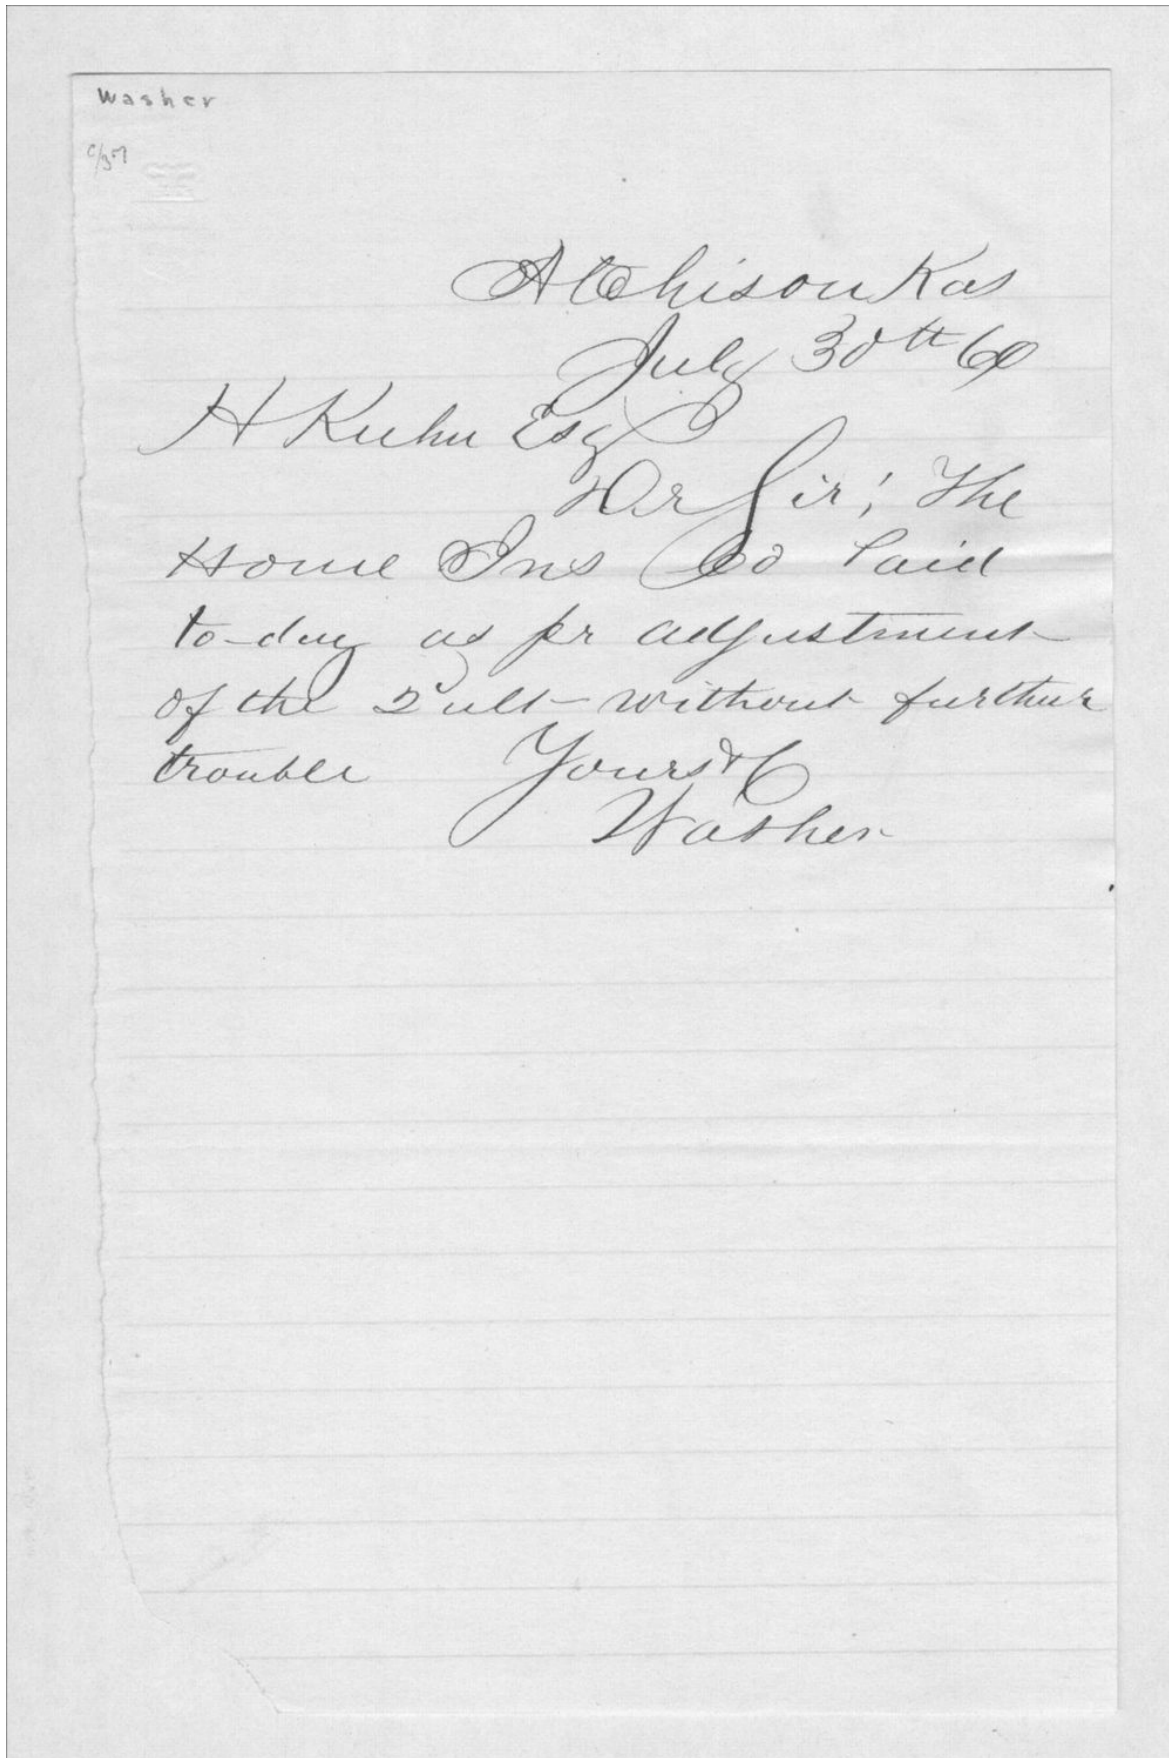 Washer
c/357
Atchison Kas
July 30th 60
H Kuhn Esq
Dr Sir; The
Home Ins Co Paid
to-day as pr adjustment
of the 2 ult - without further
trouble Yours &C
Washer